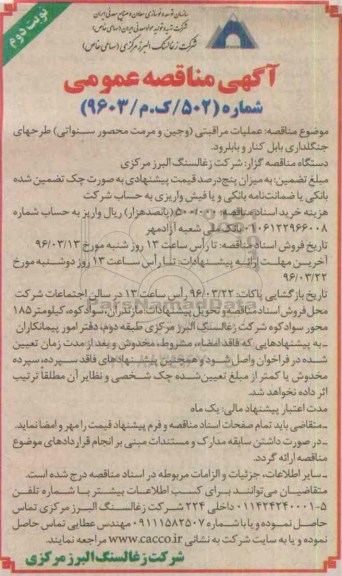 نوبت دوم
سازمان توسعه و نوسازی معادن و صنایع معدنی ایران
شرکت تهیه و تولید مواد معدنی ایران (سهامی خاص)
شرکت زغالسنگ البرز مرکزی (سهامی خاص)
آگهی مناقصه عمومی
شماره (۵۰۲/ک.م/۹۶۰۳)
موضوع مناقصه: عملیات مراقبتی (وجین و مرمت محصور سنواتی) طرحهای
جنگلداری بابل کنار و بابلرود.
دستگاه مناقصه گزار: شرکت زغالسنگ البرز مرکزی
مبلغ تضمین: به میزان پنج درصد قیمت پیشنهادی به صورت چک تضمین شده
بانکی یا ضمانت‌نامه بانکی و یا فیش واریزی به حساب شرکت
هزینه خرید اسناد مناقصه: ۵۰۰/۰۰۰ (پانصدهزار) ریال واریز به حساب شماره
۰۱۰۶۱۲۲۹۶۶۰۰۸ بانک ملی شعبه آزادمهر
تاریخ فروش اسناد مناقصه: تا رأس ساعت ۱۳ روز شنبه مورخ ۹۶/۰۳/۱۳
آخرین مهلت ارائه پیشنهادات: تا رأس ساعت ۱۳ روز دوشنبه مورخ
۹۶/۰۳/۲۲
تاریخ بازگشایی پاکات: ۹۶/۰۳/۲۲ رأس ساعت ۱۳ در سالن اجتماعات شرکت
محل فروش اسناد مناقصه و تحویل پیشنهادات: مازندران، سوادکوه، کیلومتر ۱۸۵
محور سوادکوه شرکت زغالسنگ البرز مرکزی طبقه دوم، دفتر امور پیمانکاران
ـ به پیشنهادهایی که فاقد امضاء، مشروط، مخدوش و بعد از مدت زمان تعیین
شده در فراخوان واصل شود و همچنین پیشنهادهای فاقد سپرده، سپرده
مخدوش یا کمتر از مبلغ تعیین‌شده چک شخصی و نظایر آن مطلقاً ترتیب
اثر داده نخواهد شد.
مدت اعتبار پیشنهاد مالی: یک ماه
ـ متقاضی باید تمام صفحات اسناد مناقصه و فرم پیشنهاد قیمت را مهر و امضا نماید.
ـ در صورت داشتن سابقه مدارک و مستندات مبنی بر انجام قراردادهای موضوع
مناقصه ارائه گردد.
ـ سایر اطلاعات، جزئیات و الزامات مربوطه در اسناد مناقصه درج شده است.
متقاضیان می‌توانند برای کسب اطلاعات بیشتر با شماره تلفن
۵-۰۱۱۴۲۴۲۴۰۰۰۱ داخلی ۲۲۴ شرکت زغالسنگ البرز مرکزی تماس
حاصل نموده و یا با شماره ۰۹۱۱۱۵۸۲۵۰۷ مهندس عطایی تماس حاصل
نموده و یا به سایت شرکت به نشانی www.cacco.ir مراجعه نمایند.
شرکت زغالسنگ البرز مرکزی